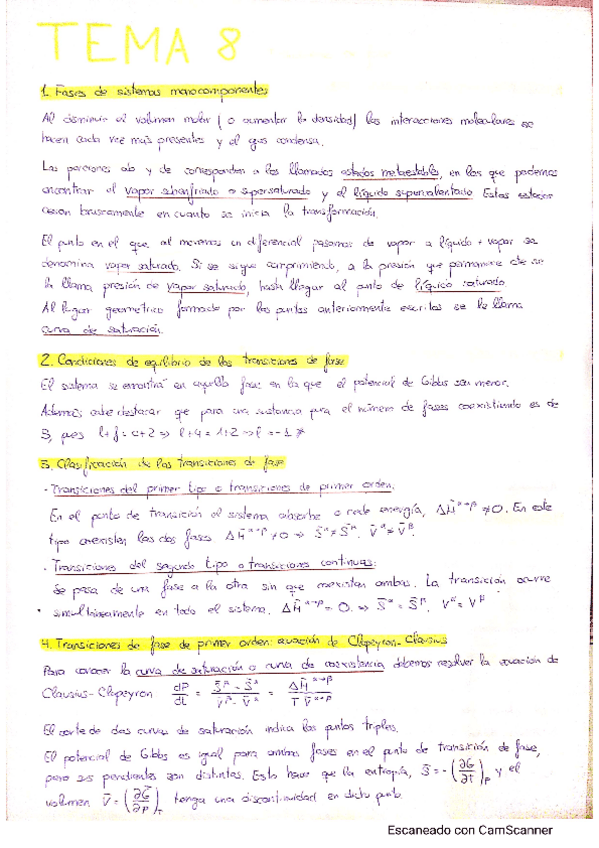 TEMA 8
1. Fases de sistemas monocomponentes
Al disminuir el volumen molar (o aumentar la densidad) las interacciones moleculares se
hacen cada vez más presentes y el gas condensa.
Las porciones ab y de corresponden a los llamados estados metaestables, en los que podemos
encontrar el vapor subenfriado o supersaturado y el líquido supercalentado. Estos estados
cesan bruscamente en cuanto se inicia la transformación.
El punto en el que al menos un diferencial pasamos de vapor a líquido + vapor se
denomina vapor saturado. Si se sigue comprimiendo, a la presión que permanece cte se
le llama presión de vapor saturado, hasta llegar al punto de líquido saturado.
Al lugar geométrico formado por los puntos anteriormente escritos se le llama
curva de saturación.
2. Condiciones de equilibrio de las transiciones de fase
El sistema se encontrá en aquella fase en la que el potencial de Gibbs sea menor.
Además cabe destacar que para una sustancia pura el número de fases coexistiendo es de
3, pues l+f=c+2 ⇒ l+4=1+2 ⇒ l=-1 *
3. Clasificación de las transiciones de fase
- Transiciones del primer tipo o transiciones de primer orden:
En el punto de transición el sistema absorbe o cede energía, ΔH̄^α→β ≠ 0. En este
tipo coexisten las dos fases ΔH̄^α→β ≠ 0 ⇒ S̄^α ≠ S̄^β. V̄^α = V̄^β.
- Transiciones del segundo tipo o transiciones continuas:
Se pasa de una fase a la otra sin que coexistan ambas. La transición ocurre
simultáneamente en todo el sistema. ΔH̄^α→β = 0. ⇒ S̄^α = S̄^β. V^α = V^β
4. Transiciones de fase de primer orden: ecuación de Clapeyron-Clausius
Para conocer la curva de saturación o curva de coexistencia debemos resolver la ecuación de
Clausius-Clapeyron dP/dt = (S̄^β - S̄^α)/(V̄^β - V̄^α) = ΔH̄^α→β/(T V̄^α→β)
El corte de dos curvas de saturación indica los puntos triples.
El potencial de Gibbs es igual para ambas fases en el punto de transición de fase,
pero sus pendientes son distintas. Esto hace que la entropía, S̄ = -(∂G/∂T)_P y el
volumen V̄ = (∂G̅/∂P)_T tenga una discontinuidad en dicho punto.
Escaneado con CamScanner